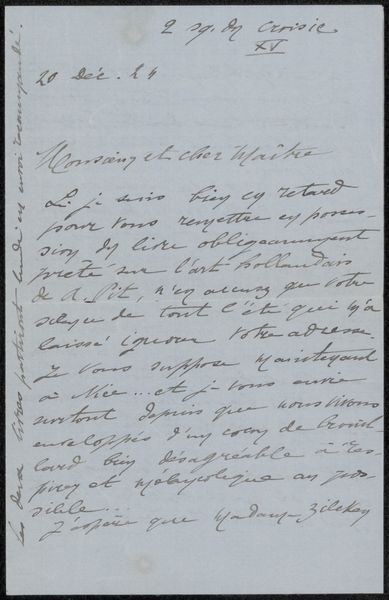 2 sq. du Croisic
XV
20 Déc. 24
Monsieur et cher Maître
Si je suis bien en retard
pour vous remettre en posses-
sion du livre obligeamment
prêté sur l'art hollandais
de A. Pit, n'en accusez que votre
silence de tout l'été qui m'a
laissé ignorer votre adresse.
Je vous suppose maintenant
à Nice... et je vous envie
surtout depuis que nous vivons
enveloppés d'un cocon de brouil-
lard bien désagréable à res-
pirer et mélancolique au pos-
sible...
J'espère que Madame Zilcken
Les deux livres partiront lundi en envoi recommandé.